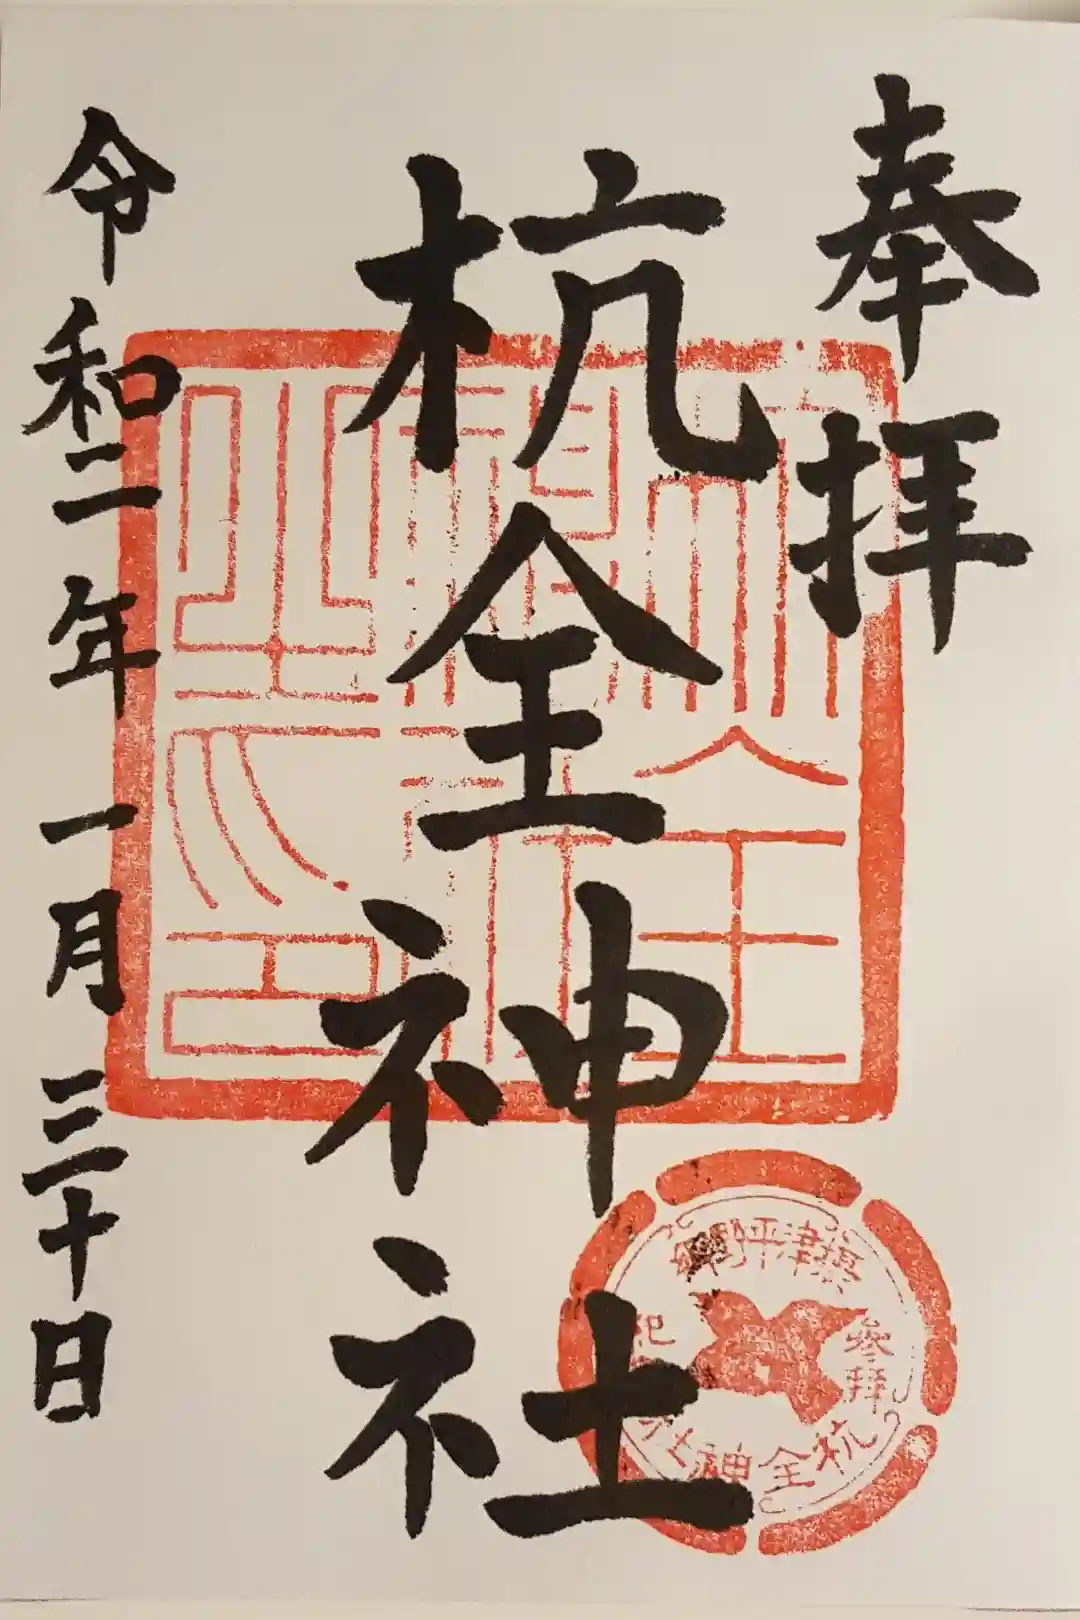 奉拝
杭全神社
令和二年一月三十日
摂津平野郷
参拝
杭全神社